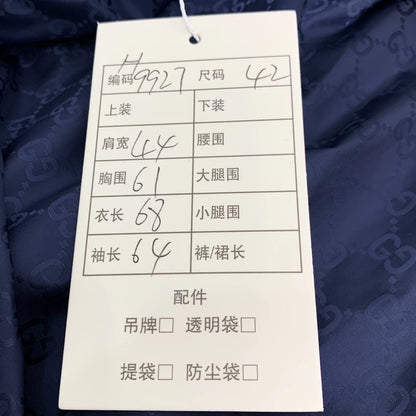 编码 H9927 尺码 42
上装 下装
肩宽 44 腰围
胸围 61 大腿围
衣长 68 小腿围
袖长 64 裤/裙长
配件
吊牌□ 透明袋□
提袋□ 防尘袋□